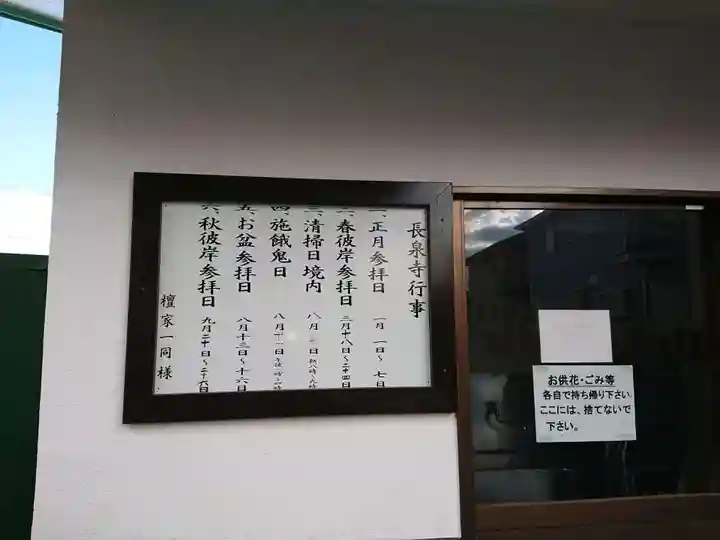 長泉寺行事
一、正月参拝日 一月 一日〜 七日
二、春彼岸参拝日 三月十八日〜二十四日
三、清掃日境内 八月 日 朝八時〜九時
四、施餓鬼日 八月十一日
五、お盆参拝日 八月十三日〜十六日
六、秋彼岸参拝日 九月二十日〜二十六日
檀家一同様
お供花・ごみ等
各自で持ち帰り下さい
ここには、捨てないで
下さい。